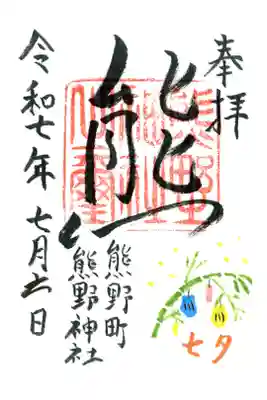 奉拝
熊
熊野町
熊野神社
令和七年 七月十一日
七夕